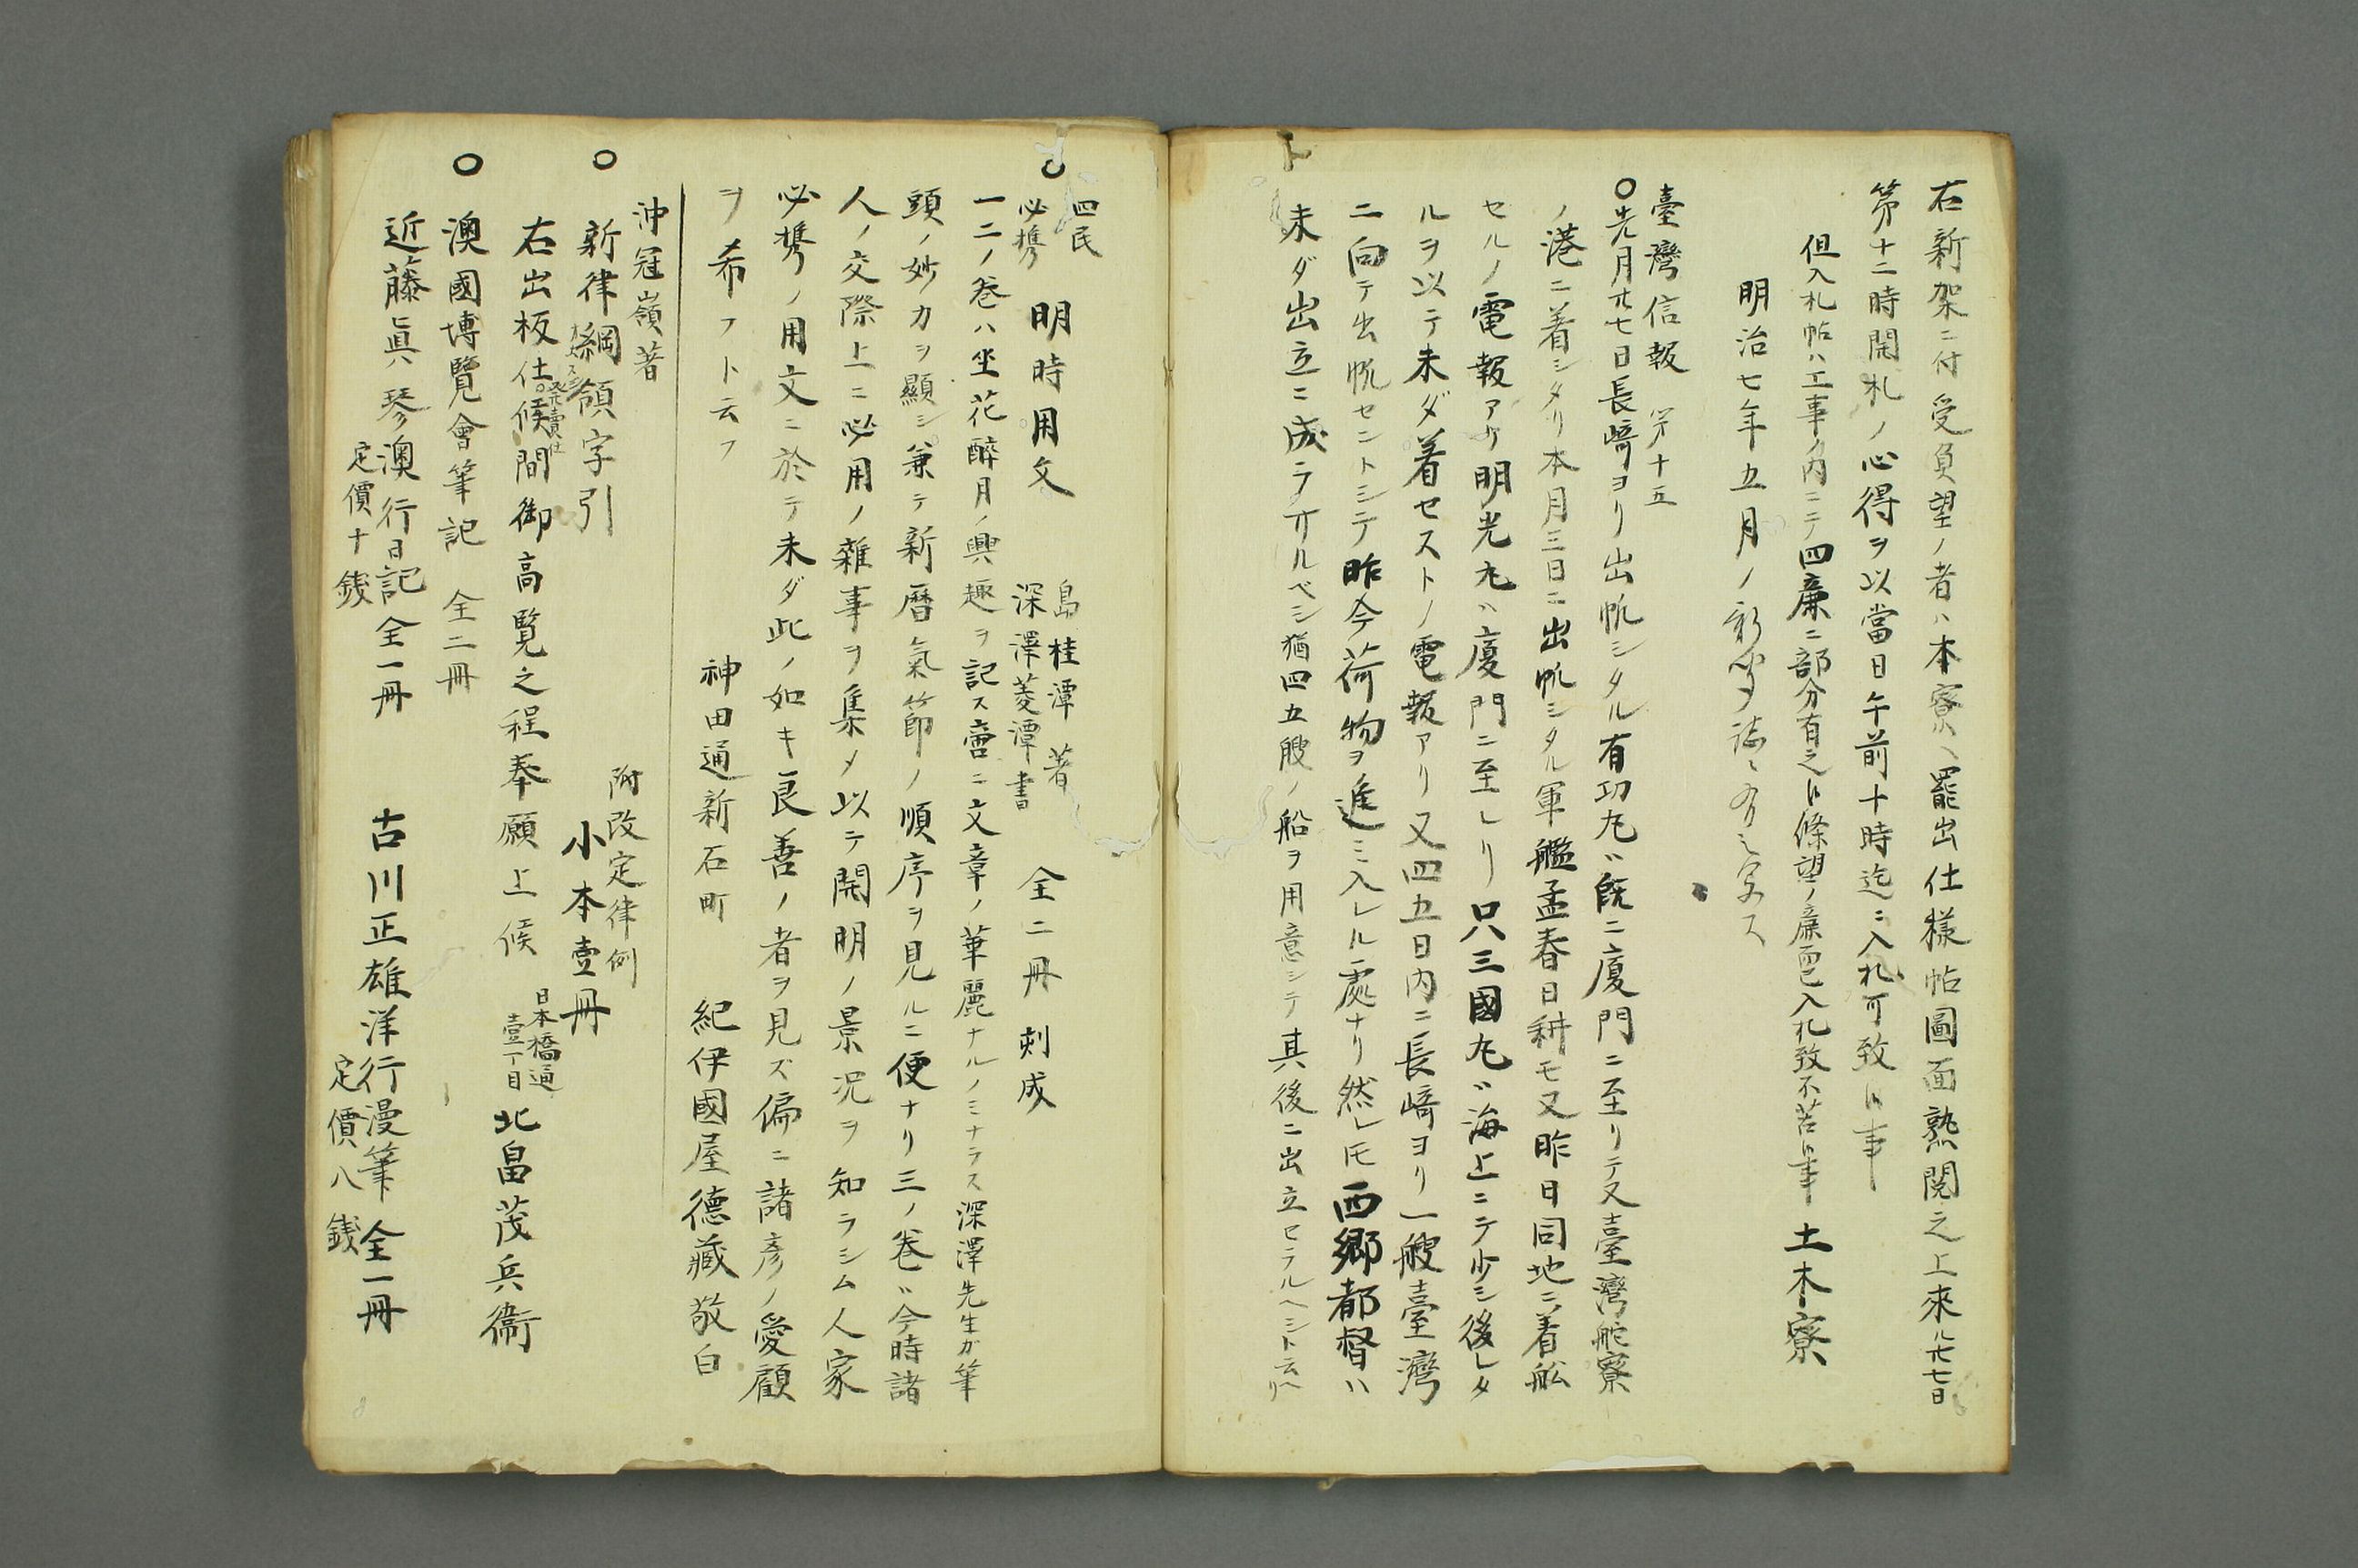 右新架ニ付受負望ノ者ハ本寮ヘ罷出仕様帖圖面熟閲之上來ル廿七日
第十二時開札ノ心得ヲ以當日午前十時迄ニ入札可致候事
但入札帖ハ工事ノ内ニテ四廉ニ部分有之候條望ノ廉而已入札致不苦候事 土木寮
明治七年五月ノ新聞誌ニ有之寫ス
臺灣信報 第十五
○先月廿七日長崎ヨリ出帆シタル有功丸ハ既ニ廈門ニ至リテ又臺灣舵寮
ノ港ニ着シタリ本月三日ニ出帆シタル軍艦孟春日耕モ又昨日同地ニ着舩
セルノ電報アリ明光丸ハ廈門ニ至レリ只三國丸ハ海上ニテ少シ後レタ
ルヲ以テ未ダ着セストノ電報アリ又四五日内ニ長崎ヨリ一艘臺灣
ニ向テ出帆セントシテ昨今荷物ヲ進ミ入レル處ナリ然レ𪜈西郷都督ハ
未ダ出立ニ成ラサルベシ猶四五艘ノ船ヲ用意シテ其後ニ出立セラルヘシト云ヘリ
○四民必携 明時用文 島桂潭著 深澤菱潭書 全二冊 刺成
一二ノ巻ハ坐花醉月ノ興趣ヲ記ス啻ニ文章ノ華麗ナルノミナラス深澤先生ガ筆
頭ノ妙カヲ顯シ兼テ新暦氣節ノ順序ヲ見ルニ便ナリ三ノ巻ハ今時諸
人ノ交際上ニ必用ノ雜事ヲ集メ以テ開明ノ景况ヲ知ラシム人家
必携ノ用文ニ於テ未ダ此ノ如キ良善ノ者ヲ見ズ偏ニ諸彦ノ愛顧
ヲ希フト云フ 神田通新石町 紀伊國屋德藏敬白
沖冠嶺著
○新律綱領字引 附改定律例 小本壹冊
右出板仕發賣仕候間御高覧之程奉願上候 日本橋通壹丁目 北畠茂兵衞
○澳國博覧會筆記 全二冊
近藤眞琴澳行日記全一冊 定價十錢
古川正雄洋行漫筆全一冊 定價八錢